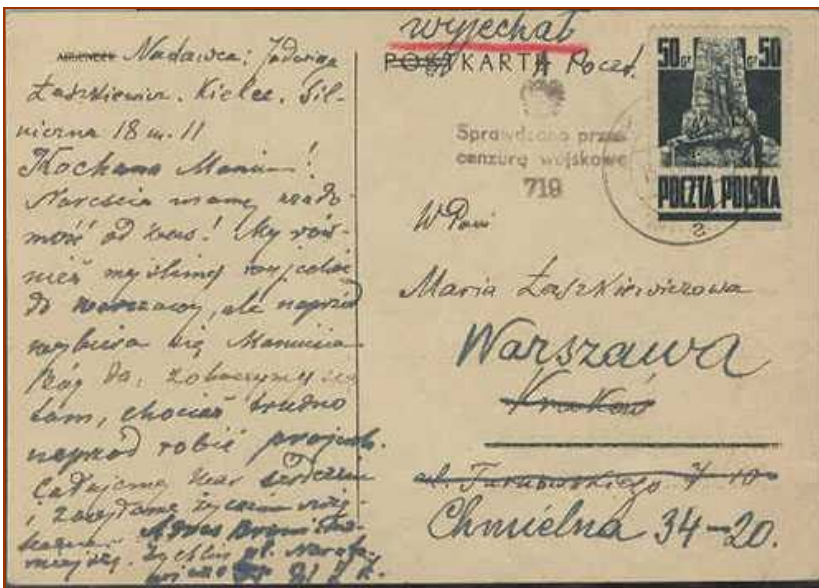 Nadawca: Jadwiga
Łaszkiewicz. Kielce. Sil-
niczna 18 m. 11
Kochana Maniu!
Nareszcie mamy wiado-
mość od Was! My rów-
nież myślimy wyjechać
do Warszawy, ale naprzód
wybiera się Mamusia
Bóg da, zobaczymy się
tam, chociaż trudno
naprzód robić projekt.
Całujemy Was serdecznie
i
Adres
Żychlin
wyjechał
POSTKARTA Poczt.
Sprawdzono przez
cenzurę wojskową
719
50 GR GR 50
POCZTA POLSKA
2
W Pani
Maria Łaszkiewiczowa
Warszawa
Kraków
ul. 10
Chmielna 34-20.